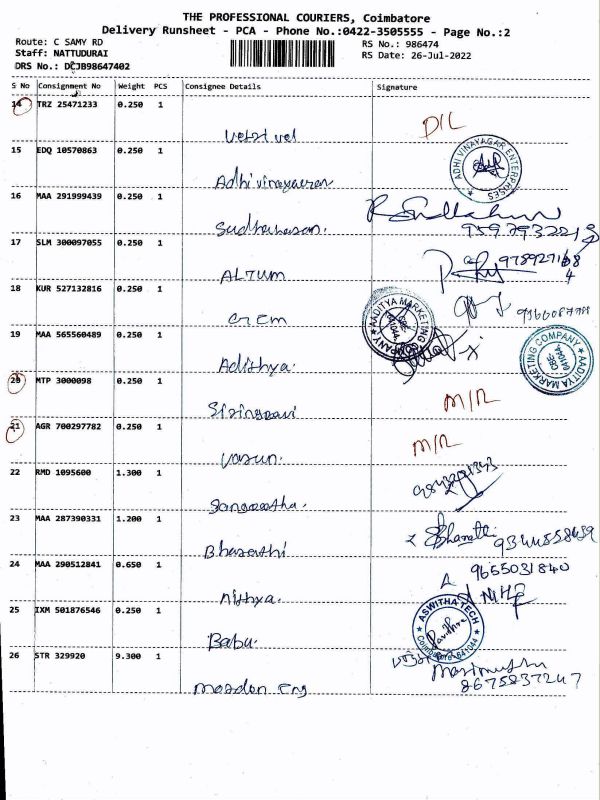 THE PROFESSIONAL COURIERS, Coimbatore
Delivery Runsheet - PCA - Phone No.:0422-3505555 - Page No.:2
Route: C SAMY RD
RS No.: 986474
Staff: NATTUDURAI
RS Date: 26-Jul-2022
DRS No.: DCJB98647402
S No Consignment No Weight PCS Consignee Details Signature
14 TRZ 25471233 0.250 1
D/L
15 EDQ 10570863 0.250 1
ADHI VINAYAGAR ENTERPRISES
16 MAA 291999439 0.250 1
Sudharasan.
17 SLM 300097055 0.250 1
ALTUM
18 KUR 527132816 0.250 1
GEM
AADITYA MARKETING COMPANY
19 MAA 565560489 0.250 1
Adithya
AADITYA MARKETING COMPANY
CBE
641044
20 MTP 3000098 0.250 1
M/R
21 AGR 700297782 0.250 1
Varun.
M/R
22 RMD 1095600 1.300 1
23 MAA 287390331 1.200 1
Bharathi
Bharathi 9344558439
24 MAA 290512841 0.650 1
9655031840
Nithya.
25 IXM 501876546 0.250 1
ASWITHA TECH
Coimbatore-641044
Babu.
26 STR 329920 9.300 1
Marimuthu
8675837247